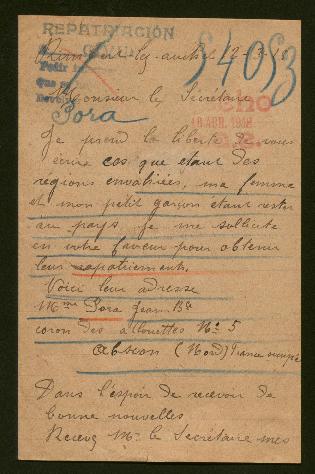 REPATRIACIÓN
54053
Pedir
18 ABR. 1918
Monsieur le Secrétaire
Sora
Je prend la liberté de vous
écrire cas que étant des
regions envahiées, ma femme
et mon petit garçon étant rester
au pays, je me sollicite
en votre faveur pour obtenir
leur rapatriement.
Voici leur adresse
Mme Sora Jean Bte
coron des allouettes No 5
Abscon (Nord) France occupée
Dans l'espoir de recevoir de
bonne nouvelles
Recevez Mr le Secrétaire mes